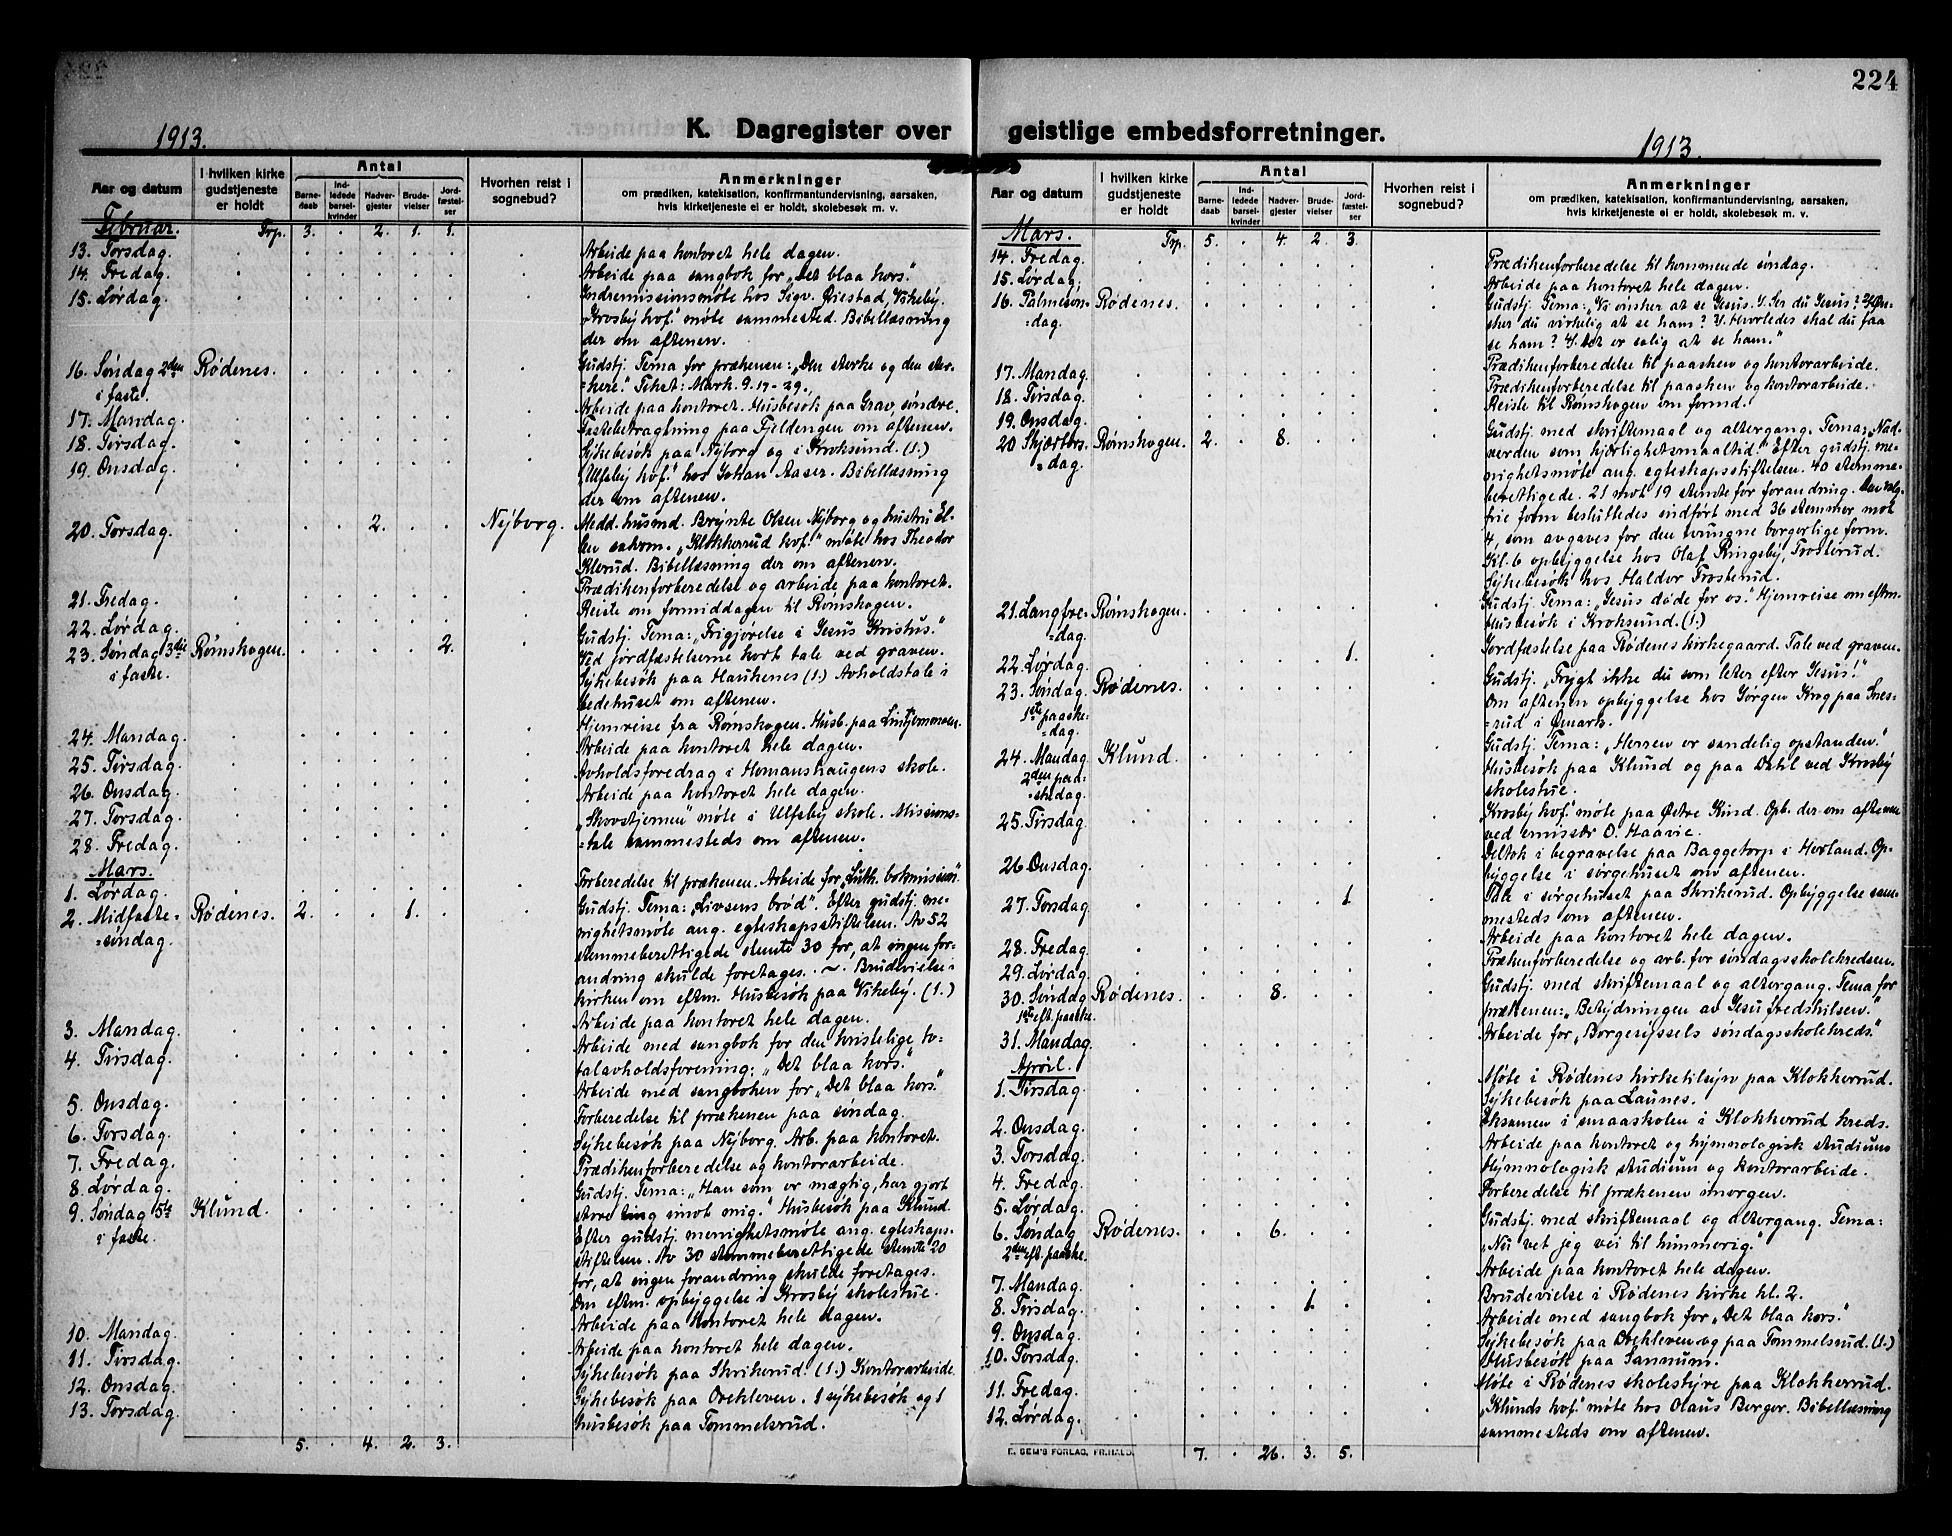 224
K. Dagregister over geistlige embedsforretninger.
1913.
Aar og datum
I hvilken kirke gudstjeneste er holdt
Antal
Barnedaab
Indledede barselkvinder
Nadvergjester
Brudevielser
Jordfæstelser
Hvorhen reist i sognebud?
Anmerkninger
om prædiken, katekisation, konfirmantundervisning, aarsaken, hvis kirketjeneste ei er holdt, skolebesøk m. v.
Februar. Trp. 3. . 2. 1. 1.
13. Torsdag. Arbeide paa kontoret hele dagen.
14. Fredag. Arbeide paa sangbok for „Det blaa kors."
15. Lørdag. Indremissionsmøte hos Sigv. Riestad, Vikeby.
„Krosby kvf." møte sammested. Bibellæsning
der om aftenen.
16. Søndag 2den Rødenes. Gudstj. Tema for prækenen: „Den sterke og den ster-
i faste. =kere." Tekst: Mark. 9. 17-29.
17. Mandag. Arbeide paa kontoret. Husbesøk paa Grav, søndre.
Fastebetragtning paa Fjeldengen om aftenen.
18. Tirsdag. Sykebesøk paa Nyborg og i Kroksund. (1.)
19. Onsdag. „Ulfsby kvf." hos Johan Aaser. Bibellæsning
der om aftenen.
20. Torsdag. 2. Nyborg. Medd. husmd. Brynte Olsen Nyborg og hustru El-
len sakrm. „Klokkerrud kvf." møte hos Theodor
Klerud. Bibellæsning der om aftenen.
21. Fredag. Prædikenforberedelse og arbeide paa kontoret.
22. Lørdag. Reiste om formiddagen til Rømskogen.
23. Søndag 3die Rømskogen. 2. Gudstj. Tema: „Frigjørelse i Jesus Kristus."
i faste. Ved jordfæstelserne kort tale ved graven.
Sykebesøk paa Haukenes (1.) Avholdstale i
bedehuset om aftenen.
24. Mandag. Hjemreise fra Rømskogen. Husb. paa Lintjernmoen.
25. Tirsdag. Arbeide paa kontoret hele dagen.
26. Onsdag. Avholdsforedrag i Homanshaugens skole.
27. Torsdag. Arbeide paa kontoret hele dagen.
28. Fredag. „Skovstjernen" møte i Ulfsby skole. Missions-
=tale sammesteds om aftenen.
Mars.
1. Lørdag. Forberedelse til prækenen. Arbeide for „Luth. bokmission".
2. Midfaste= Rødenes. 2. . . 1. Gudstj. Tema: „Livsens brød". Efter gudstj. me-
=søndag. nighetsmøte ang. egteskapsstiftelsen. Av 52
stemmeberettigede stemte 30 for, at ingen for-
andring skulde foretages. . ~ . Brudevielse i
kirken om eftm. Husbesøk paa Vikeby. (1.)
3. Mandag. Arbeide paa kontoret hele dagen.
4. Tirsdag. Arbeide med sangbok for den kristelige to-
talavholdsforening: „Det blaa kors."
5. Onsdag. Arbeide med sangboken for „Det blaa kors."
6. Torsdag. Forberedelse til prækenen paa søndag.
7. Fredag. Sykebesøk paa Nyborg. Arb. paa kontoret.
8. Lørdag. Prædikenforberedelse og kontorarbeide.
9. Søndag 5te Klund. Gudstj. Tema: „Han som er mægtig, har gjort
i faste. store ting imot mig." Husbesøk paa Klund.
Efter gudstj. menighetsmøte ang. egteskaps-
stiftelsen. Av 30 stemmeberettigede stemte 20
for, at ingen forandring skulde foretages.
Om eftm. opbyggelse i Krosby skolestue.
10. Mandag. Arbeide paa kontoret hele dagen.
11. Tirsdag. Arbeide paa kontoret hele dagen.
12. Onsdag. Sykebesøk paa Skrikerud. (1.) Kontorarbeide.
13. Torsdag. Sykebesøk paa Ovekleven. 1 sykebesøk og 1
husbesøk paa Tommelsrud.
5. . 4. 2. 3.
1913.
Aar og datum
I hvilken kirke gudstjeneste er holdt
Antal
Barnedaab
Indledede barselkvinder
Nadvergjester
Brudevielser
Jordfæstelser
Hvorhen reist i sognebud?
Anmerkninger
om prædiken, katekisation, konfirmantundervisning, aarsaken, hvis kirketjeneste ei er holdt, skolebesøk m. v.
Mars. Trp. 5. . 4. 2. 3.
14. Fredag. Prædikenforberedelse til kommende søndag.
15. Lørdag. Arbeide paa kontoret hele dagen.
16. Palmesøn- Rødenes. Gudstj. Tema: „Vi ønsker at se Jesus. 1/ Ser du Jesus? 2/ Øn-
=dag. sker du virkelig at se ham? 3/ Hvorledes skal du faa
se ham? 4/ Det er salig at se ham."
17. Mandag. Prædikenforberedelse til paasken og kontorarbeide.
18. Tirsdag. Prædikenforberedelse til paasken og kontorarbeide.
19. Onsdag. Reiste til Rømskogen om formd.
20 Skjærtors- Rømskogen. 2. . 8. Gudstj. med skriftemaal og altergang. Tema: „Nad-
=dag. verden som kjærlighetsmaaltid." Efter gudstj. me-
nighetsmøte ang. egteskapsstiftelsen. 40 stemme-
berettigede. 21 mot 19 stemte for forandring. Den valg-
frie form besluttedes indført med 36 stemmer mot
4, som avgaves for den tvungne borgerlige form.
Kl. 6 opbyggelse hos Olaf Ringsby, Trosterud.
Sykebesøk hos Haldor Trosterud.
21. Langfre- Rømskogen. Gudstj. Tema: „Jesus døde for os." Hjemreise om eftm.
=dag. Husbesøk i Kroksund. (1.)
22. Lørdag. 1. Jordfæstelse paa Rødenes kirkegaard. Tale ved graven.
23. Søndag. Rødenes. Gudstj. „Frygt ikke du som leter efter Jesus!"
1ste paaske= Om aftenen opbyggelse hos Jørgen Krog paa Snes-
=dag. =rud i Ømark.
24. Mandag Klund. Gudstj. Tema: „Herren er sandelig opstanden."
2den paa- Husbesøk paa Klund og paa Dahl ved Krosby
=skedag. skolestue.
25. Tirsdag „Krosby kvf." møte paa Østre Kind. Opb. der om aftenen
ved emissær O. Haavie.
26 Onsdag. Deltok i begravelse paa Baggetorp i Herland. Op-
byggelse i sørgehuset om aftenen.
27. Torsdag. 1. Tale i sørgehuset paa Skrikerud. Opbyggelse sam-
mesteds om aftenen.
28. Fredag. Arbeide paa kontoret hele dagen.
29. Lørdag. Prækenforberedelse og arb. for søndagsskolekredsen.
30. Søndag Rødenes. 8. Gudstj. med skriftemaal og altergang. Tema for
1ste eft. paaske. prækenen: „Betydningen av Jesu fredshilsen."
31. Mandag. Arbeide for „Borgesyssels søndagsskolekreds."
April.
1. Tirsdag. Møte i Rødenes kirketilsyn paa Klokkerrud.
Sykebesøk paa Launes.
2. Onsdag. Eksamen i smaaskolen i Klokkerrud kreds.
3. Torsdag. Arbeide paa kontoret og hymnologisk studium
4. Fredag. Hymnologisk studium og kontorarbeide.
5. Lørdag. Forberedelse til prækenen imorgen.
6. Søndag Rødenes. 6. Gudstj. med skriftemaal og altergang. Tema:
2den eft. paaske. „Nu vet jeg vei til himmerig."
7. Mandag. Arbeide paa kontoret hele dagen.
8. Tirsdag. 1. Brudevielse i Rødenes kirke kl. 2.
9. Onsdag. Arbeide med sangbok for „Det blaa kors."
10. Torsdag. Sykebesøk paa Ovekleven og paa Tommelsrud. (1.)
Husbesøk paa Sannum.
11. Fredag. Møte i Rødenes skolestyre paa Klokkerrud.
12. Lørdag. „Klunds kvf." møte hos Olaus Berger. Bibellæsning
sammesteds om aftenen.
E. SEM'S FORLAG, FR.HALD.
7. . 26. 3. 5.